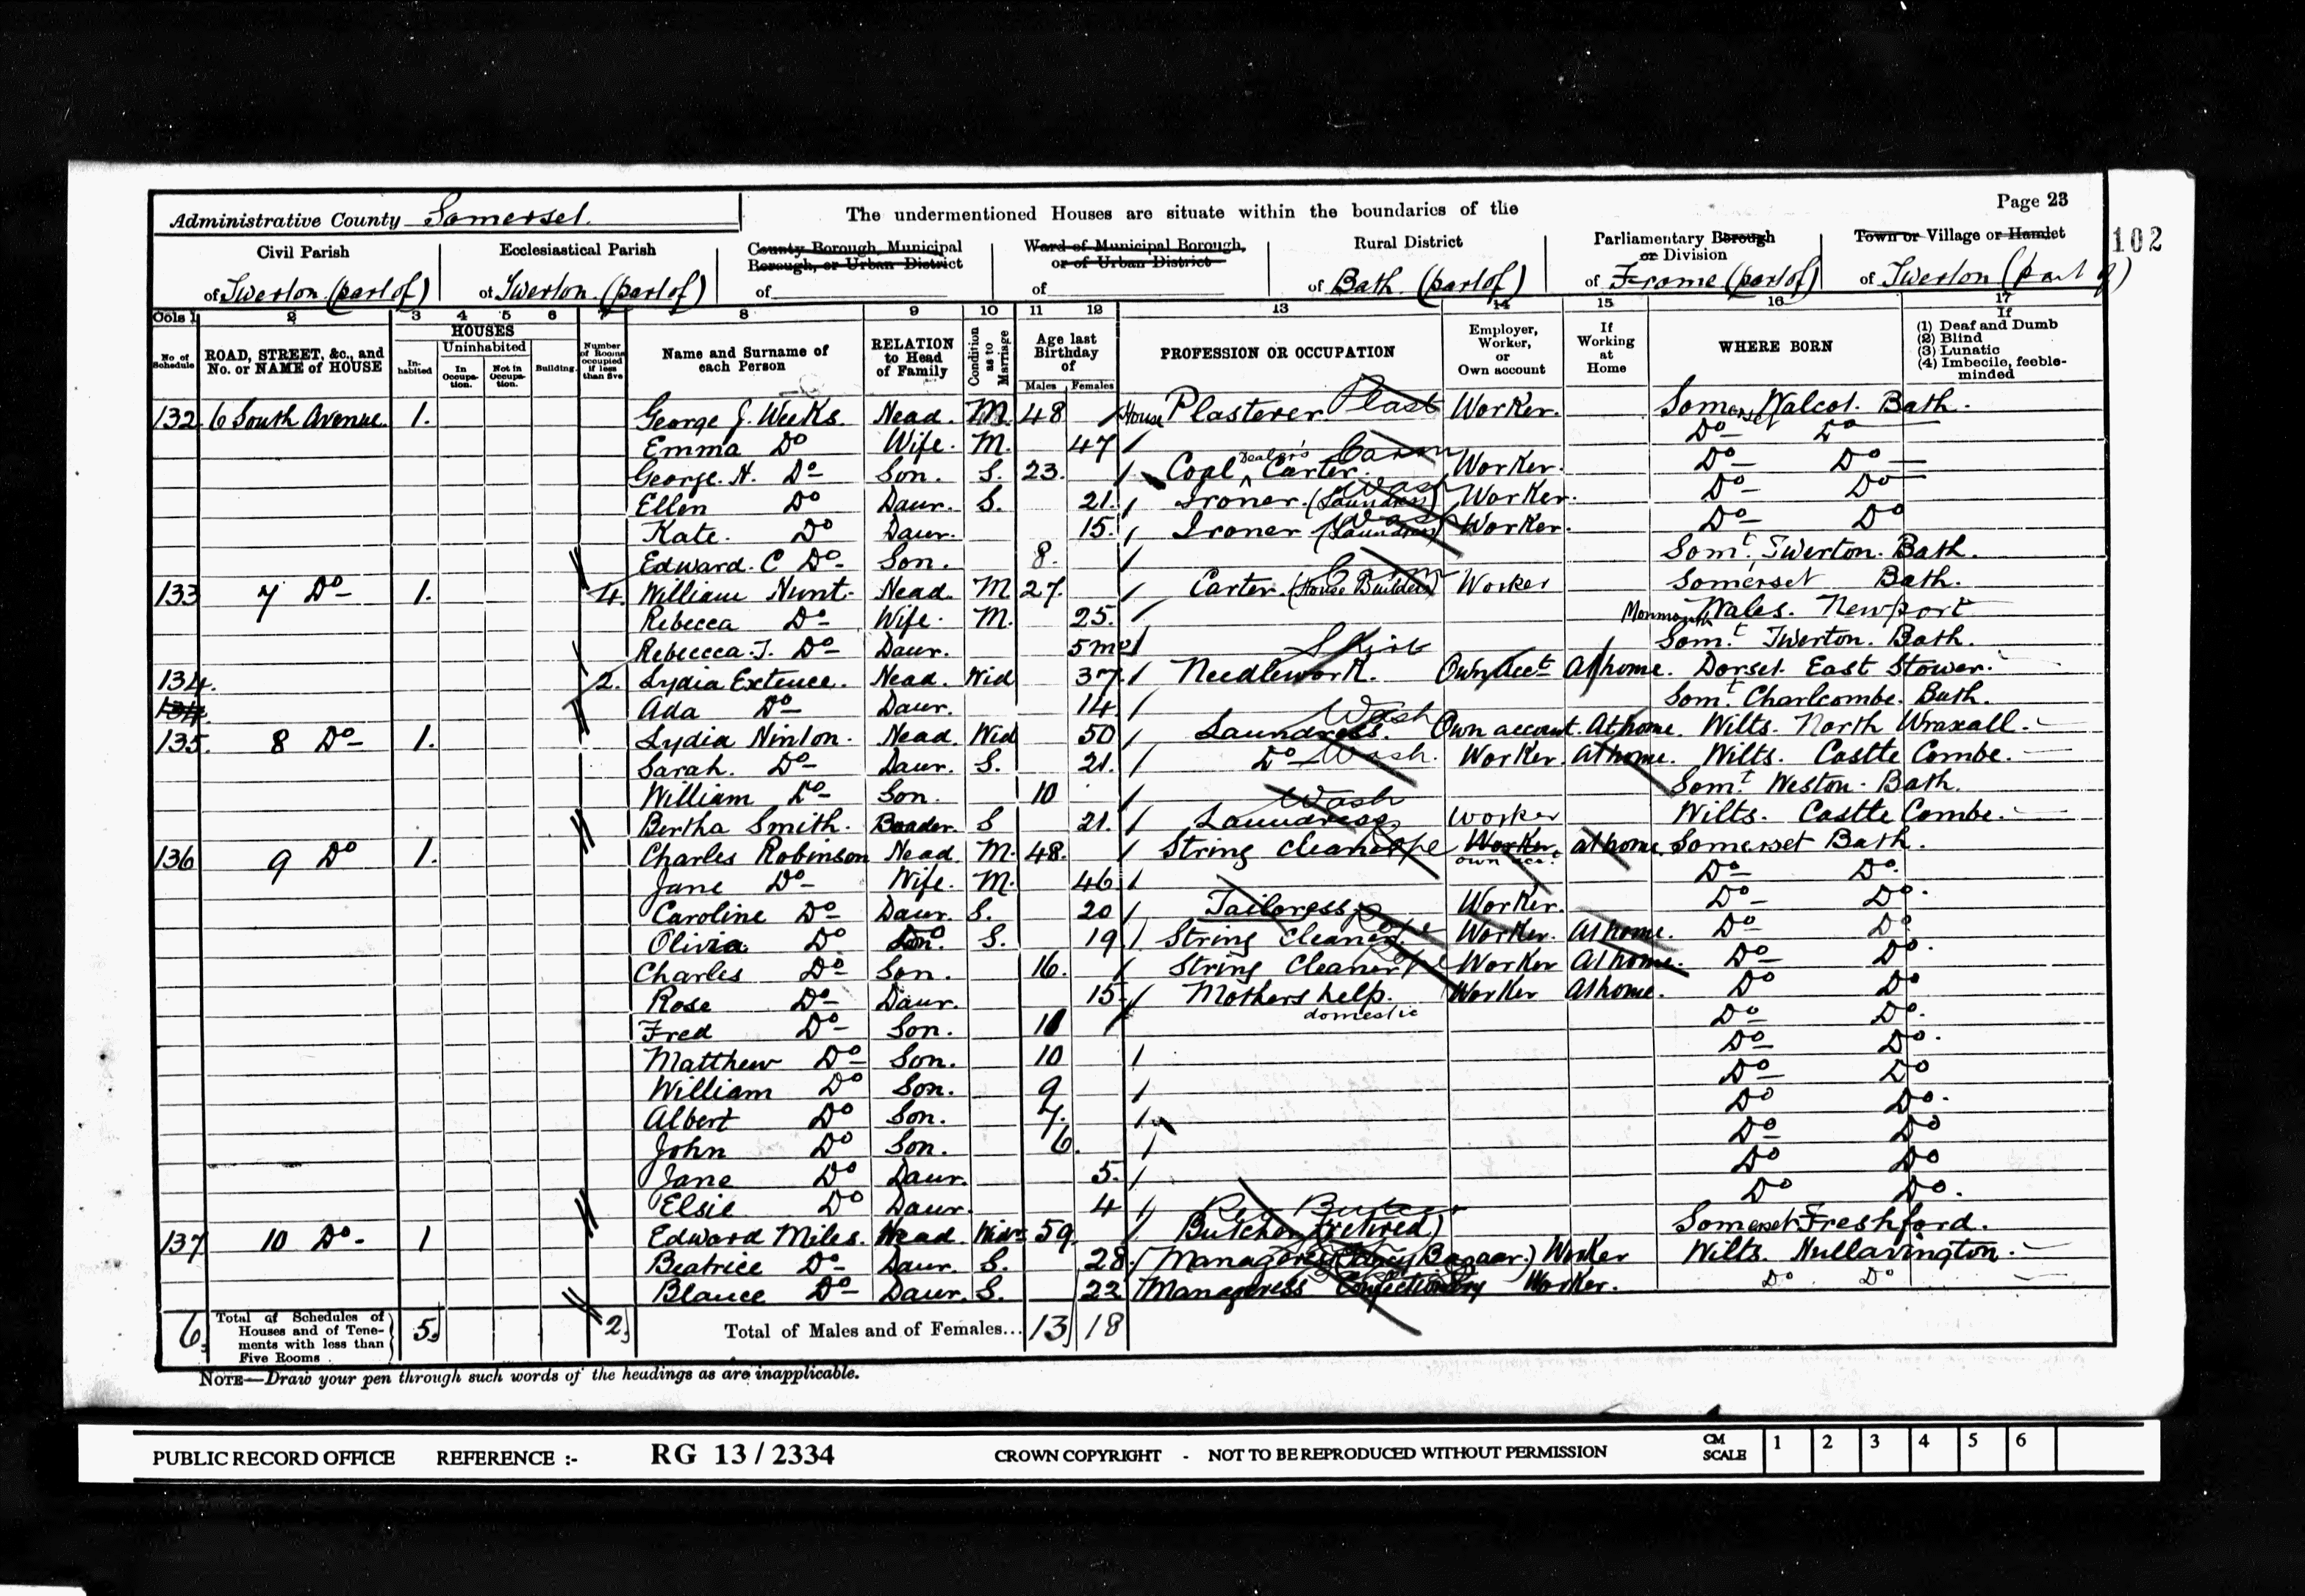 Page 23
Administrative County Somerset. The undermentioned Houses are situate within the boundaries of the
102
Civil Parish Ecclesiastical Parish County Borough, Municipal Borough, or Urban District Ward of Municipal Borough, or of Urban District Rural District Parliamentary Borough or Division Town or Village or Hamlet
of Twerton (part of) of Twerton (part of) of of of Bath (part of) of Frome (part of) of Twerton (part of)
Cols 1 2 3 4 5 6 7 8 9 10 11 12 13 14 15 16 17
No of Schedule ROAD, STREET, &c., and No. or NAME of HOUSE HOUSES Inhabited Uninhabited In Occupation. Not in Occupation. Building. Number of Rooms occupied if less than five Name and Surname of each Person RELATION to Head of Family Condition as to Marriage Age last Birthday of Males Females PROFESSION OR OCCUPATION Employer, Worker, or Own account If Working at Home WHERE BORN If (1) Deaf and Dumb (2) Blind (3) Lunatic (4) Imbecile, feeble-minded
132 6 South Avenue 1. George J. Weeks. Head. M. 48 House Plasterer Plast Worker. Somerset Walcot. Bath.
Emma Do Wife. M. 47 Do Do
George. H. Do Son. S. 23. Coal Dealer's Carter. Worker. Do Do
Ellen Do Daur. S. 21. Ironer (Laundress) Wash Worker. Do Do
Kate. Do Daur. 15. Ironer (Laundress) Worker. Do Do
Edward. C Do Son. 8. Somt. Twerton. Bath.
133 7 Do 1. 4. William Hunt. Head. M 27. Carter. (House Builders) Worker Somerset Bath.
Rebecca Do Wife. M. 25. Monmouth Wales. Newport
Rebecca. J. Do Daur. 5 mo Somt. Twerton. Bath.
134. 2. Lydia Extence. Head. Wid 37. Needlework. Own Acct At home. Dorset. East Stower.
134. Ada Do Daur. 14. Somt. Charlcombe. Bath.
135. 8 Do 1. Lydia Hinton. Head. Wid 50 Laundress. Wash Own account. At home. Wilts. North Wraxall.
Sarah. Do Daur. S. 21. Do Wash. Worker. At home. Wilts. Castle Combe.
William Do Son. 10 Somt Weston. Bath.
Bertha Smith. Boader. S 21. Laundress Wash Worker Wilts. Castle Combe.
136 9 Do 1. Charles Robinson Head. M. 48. String Cleaner Worker. own acc. at home. Somerset Bath.
Jane Do Wife. M. 46 Do Do.
Caroline Do Daur. S. 20 Tailoress Worker. Do Do.
Olivia Do Do. S. 19 String Cleaner. Worker. At home. Do Do
Charles Do Son. 16. String Cleaner Worker At home. Do Do.
Rose Do Daur. 15 Mothers help. domestic Worker At home. Do Do
Fred Do Son. 11 Do Do.
Matthew Do Son. 10 Do Do.
William Do Son. 9 Do Do
Albert Do Son. 7. Do Do.
John Do Son. 6. Do Do
Jane Do Daur. 5. Do Do
Elsie Do Daur. 4 Do Do.
137 10 Do. 1 Edward Miles. Head. Widr 59. Butcher (retired) Somerset Freshford.
Beatrice Do Daur. S. 28. Manageress (Fancy Bazaar.) Worker Wilts. Hullavington.
Blance Do Daur. S. 22 Manageress Confectionery Worker. Do Do
6. Total of Schedules of Houses and of Tenements with less than Five Rooms 5. 2. Total of Males and of Females... 13 18
NOTE—Draw your pen through such words of the headings as are inapplicable.
PUBLIC RECORD OFFICE REFERENCE :- RG 13 / 2334 CROWN COPYRIGHT - NOT TO BE REPRODUCED WITHOUT PERMISSION CM SCALE 1 2 3 4 5 6